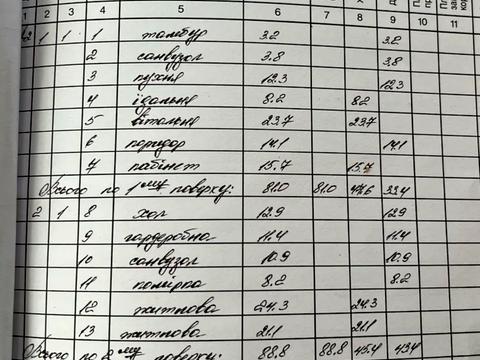 1 2 3 4 5 6 7 8 9 10 11
1 1 1 тамбур 3.2 3.2
2 санвузол 3.8 3.8
3 кухня 12.3 12.3
4 їдальня 8.2 8.2
5 вітальня 23.7 23.7
6 коридор 14.1 14.1
7 кабінет 15.7 15.7
Всього по 1му поверху: 81.0 81.0 47.6 33.4
2 1 8 хол 12.9 12.9
9 гардеробна 11.4 11.4
10 санвузол 10.9 10.9
11 комірка 8.2 8.2
12 житлова 24.3 24.3
13 житлова 21.1 21.1
Всього по 2му поверху: 88.8 88.8 45.4 43.4